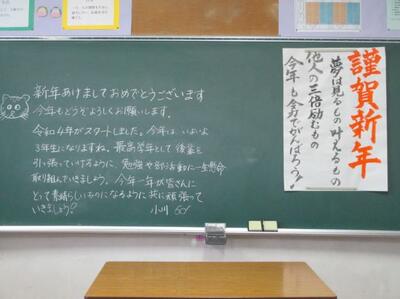 新年あけましておめでとうございます
今年もどうぞよろしくお願いします。
令和4年がスタートしました。今年は、いよいよ
3年生になりますね。最高学年として後輩を
引っ張っていけるように、勉強や部活動に一生懸命
取り組んでいきましょう。今年一年が皆さんに
とって素晴らしいものになるように共に頑張って
いきましょう!
小川
謹賀新年
夢は見るもの叶えるもの
他人の三倍励むもの
今年も全力でがんばろう!